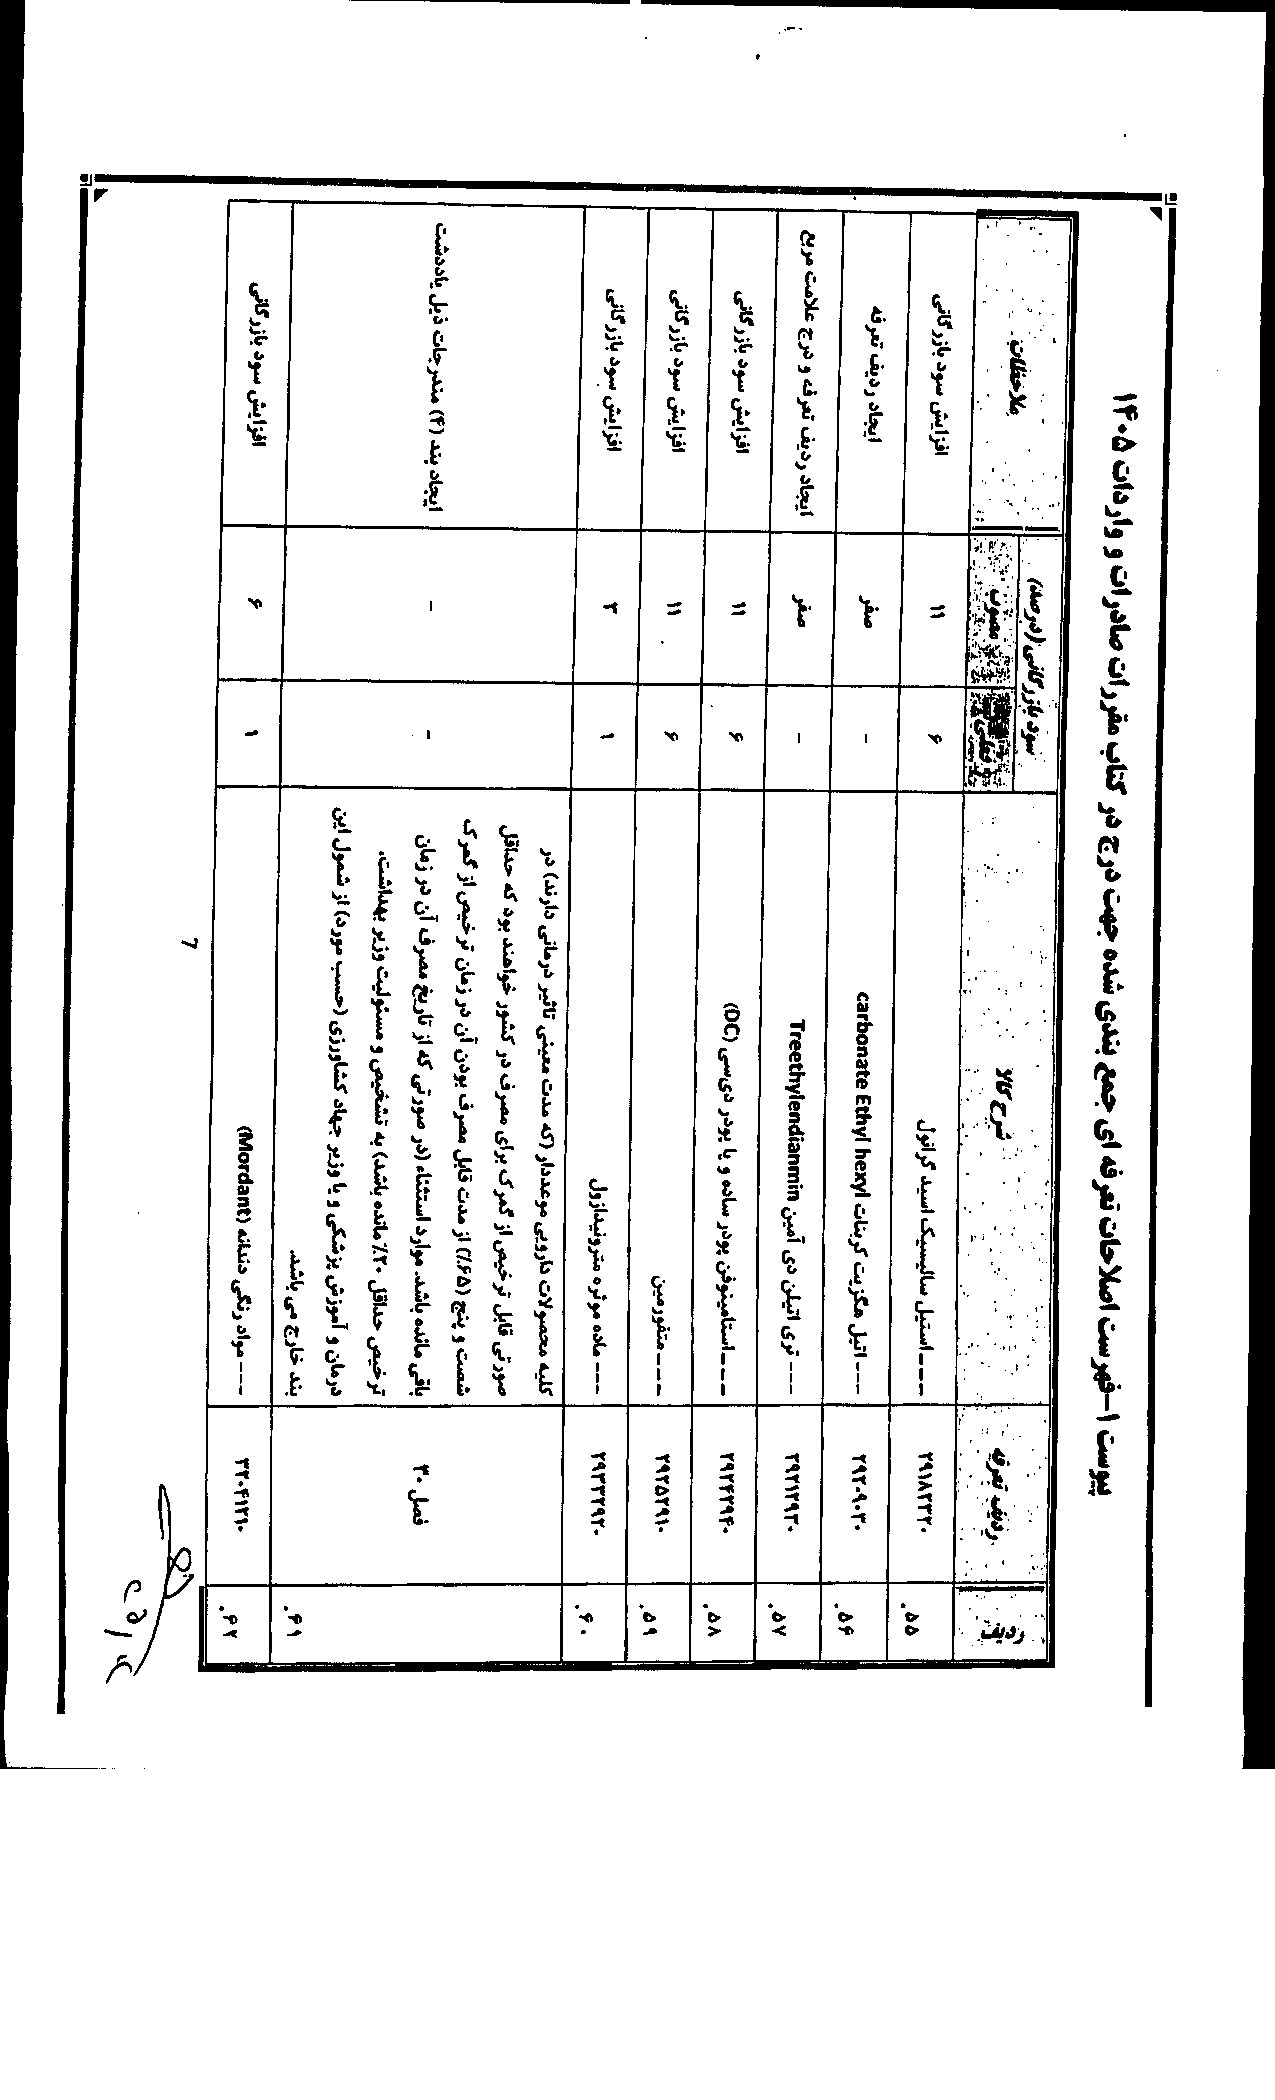 پیوست ۱-فهرست اصلاحات تعرفه ای جمع بندی شده جهت درج در کتاب مقررات صادرات و واردات ۱۴۰۵
ردیف ردیف تعرفه شرح کالا سود بازرگانی (درصد) ملاحظات
فعلی مصوب
۵۵. ۲۹۱۸۲۲۲۰ ---- استیل سالیسیک اسید گرانول ۶ ۱۱ افزایش سود بازرگانی
۵۶. ۲۹۲۰۹۰۳۰ --- اتیل هگزیت کربنات carbonate Ethyl hexyl - صفر ایجاد ردیف تعرفه
۵۷. ۲۹۲۱۲۹۳۰ --- تری اتیلن دی آمین Treethylendianmin - صفر ایجاد ردیف تعرفه و درج علامت مربع
۵۸. ۲۹۲۴۲۹۴۰ ----استامینوفن پودر ساده و یا پودر دی‌سی (DC) ۶ ۱۱ افزایش سود بازرگانی
۵۹. ۲۹۲۵۲۹۱۰ ---- متفورمین ۶ ۱۱ افزایش سود بازرگانی
۶۰. ۲۹۳۳۲۹۲۰ --- ماده موثره مترونیدازول ۱ ۳ افزایش سود بازرگانی
۶۱. فصل ۳۰ کلیه محصولات دارویی موعددار (که مدت معینی تاثیر درمانی دارند) در
صورتی قابل ترخیص از گمرک برای مصرف در کشور خواهند بود که حداقل
شصت و پنج (۶۵٪) از مدت قابل مصرف بودن آن در زمان ترخیص از گمرک
باقی مانده باشد. موارد استثناء (در صورتی که از تاریخ مصرف آن در زمان
ترخیص حداقل ۲۰٪ مانده باشد) به تشخیص و مسئولیت وزیر بهداشت،
درمان و آموزش پزشکی و یا وزیر جهاد کشاورزی (حسب مورد) از شمول این
بند خارج می باشد.
- - ایجاد بند (۴) مندرجات ذیل یاددشت
۶۲. ۳۲۰۴۱۲۱۰ --- مواد رنگی دندانه (Mordant) ۱ ۶ افزایش سود بازرگانی
۷